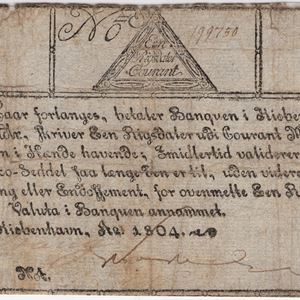 No 199750
Een
Rigsdaler
Courant
aar forlanges, betaler Banquen i Kiobe
skriver Een Rigsdaler udi Courant M
i Hænde havende; Imidlertid validerer
co-Seddel saa længe den er til, uden videre
ng eller Endossement, for ovenmelte Een R
Valuta i Banquen annammet.
Kiøbenhavn, Ao: 1804.
Nt.